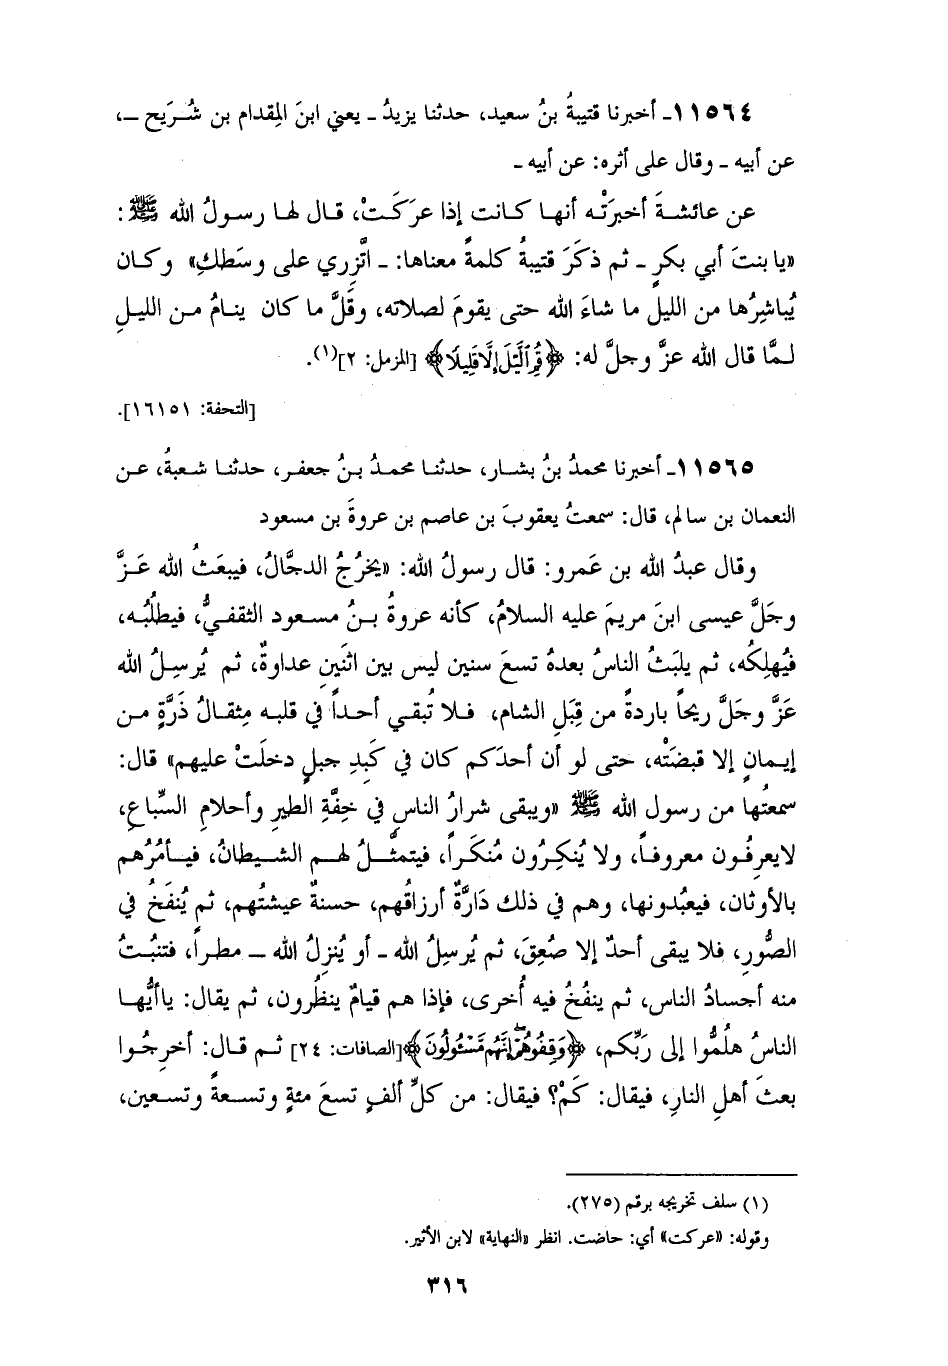 ١١٥٦٤ـ أخبرنا قتيبةُ بنُ سعيد، حدثنا يزيدُ ـ يعني ابنَ المِقدام بن شُرَيح ـ،
عن أبيه ـ وقال على أثره: عن أبيه ـ
عن عائشةَ أخبرَتْه أنها كانت إذا عرَكَتْ، قال لها رسولُ الله ﷺ:
«يا بنتَ أبي بكرٍ ـ ثم ذكَرَ قتيبةُ كلمةً معناها: ـ اتَّزِري على وسَطكِ» وكان
يُباشِرُها من الليل ما شاءَ الله حتى يقومَ لصلاته، وقَلَّ ما كان ينامُ من الليلِ
لمَّا قال الله عزَّ وجلَّ له: ﴿قُمِ ٱلَّيۡلَ إِلَّا قَلِيلًا﴾ [المزمل: ٢](١).
[التحفة: ١٦١٥١].
١١٥٦٥ـ أخبرنا محمدُ بنُ بشار، حدثنا محمدُ بنُ جعفر، حدثنا شعبةُ، عن
النعمان بن سالم، قال: سمعتُ يعقوبَ بن عاصم بن عروةَ بن مسعود
وقال عبدُ الله بن عَمرو: قال رسولُ الله: «يخرُجُ الدجَّالُ، فيبعَثُ الله عَزَّ
وجَلَّ عيسى ابنَ مريمَ عليه السلامُ، كأنه عروةُ بنُ مسعود الثقفيُّ، فيطلُبُه،
فيُهلِكُه، ثم يلبَثُ الناسُ بعدهُ تسعَ سنين ليس بين اثنَينِ عداوةٌ، ثم يُرسِلُ الله
عَزَّ وجَلَّ ريحاً باردةً من قِبَلِ الشام، فلا تُبقي أحداً في قلبه مِثقالُ ذَرَّةٍ من
إيمانٍ إلا قبضَتْه، حتى لو أن أحدَكم كان في كَبِدِ جبلٍ دخلَتْ عليهم» قال:
سمعتُها من رسول الله ﷺ «ويبقى شرارُ الناسِ في خِفَّةِ الطيرِ وأحلامِ السِّباعِ،
لايعرِفُون معروفاً، ولا يُنكِرُون مُنكَراً، فيتمثَّلُ لهم الشيطانُ، فيأمُرُهم
بالأوثان، فيعبُدونها، وهم في ذلك دَارَّةٌ أرزاقُهم، حسنةٌ عيشتُهم، ثم يُنفَخُ في
الصُّورِ، فلا يبقى أحدٌ إلا صُعِقَ، ثم يُرسِلُ الله ـ أو يُنزِلُ الله ـ مطراً، فتنبُتُ
منه أجسادُ الناس، ثم ينفُخُ فيه أُخرى، فإذا هم قيامٌ ينظُرون، ثم يقال: ياأيُّها
الناسُ هلُمُّوا إلى رَبِّكم، ﴿وَقِفُوهُمۡۖ إِنَّهُم مَّسۡـُٔولُونَ﴾[الصافات: ٢٤] ثم قال: أخرِجُوا
بعثَ أهلِ النارِ، فيقال: كَمْ؟ فيقال: من كلِّ ألفٍ تسعَ مئةٍ وتسعةً وتسعين،
(١) سلف تخريجه برقم (٢٧٥).
وقوله: «عركت» أي: حاضت. انظر «النهاية» لابن الأثير.
٣١٦